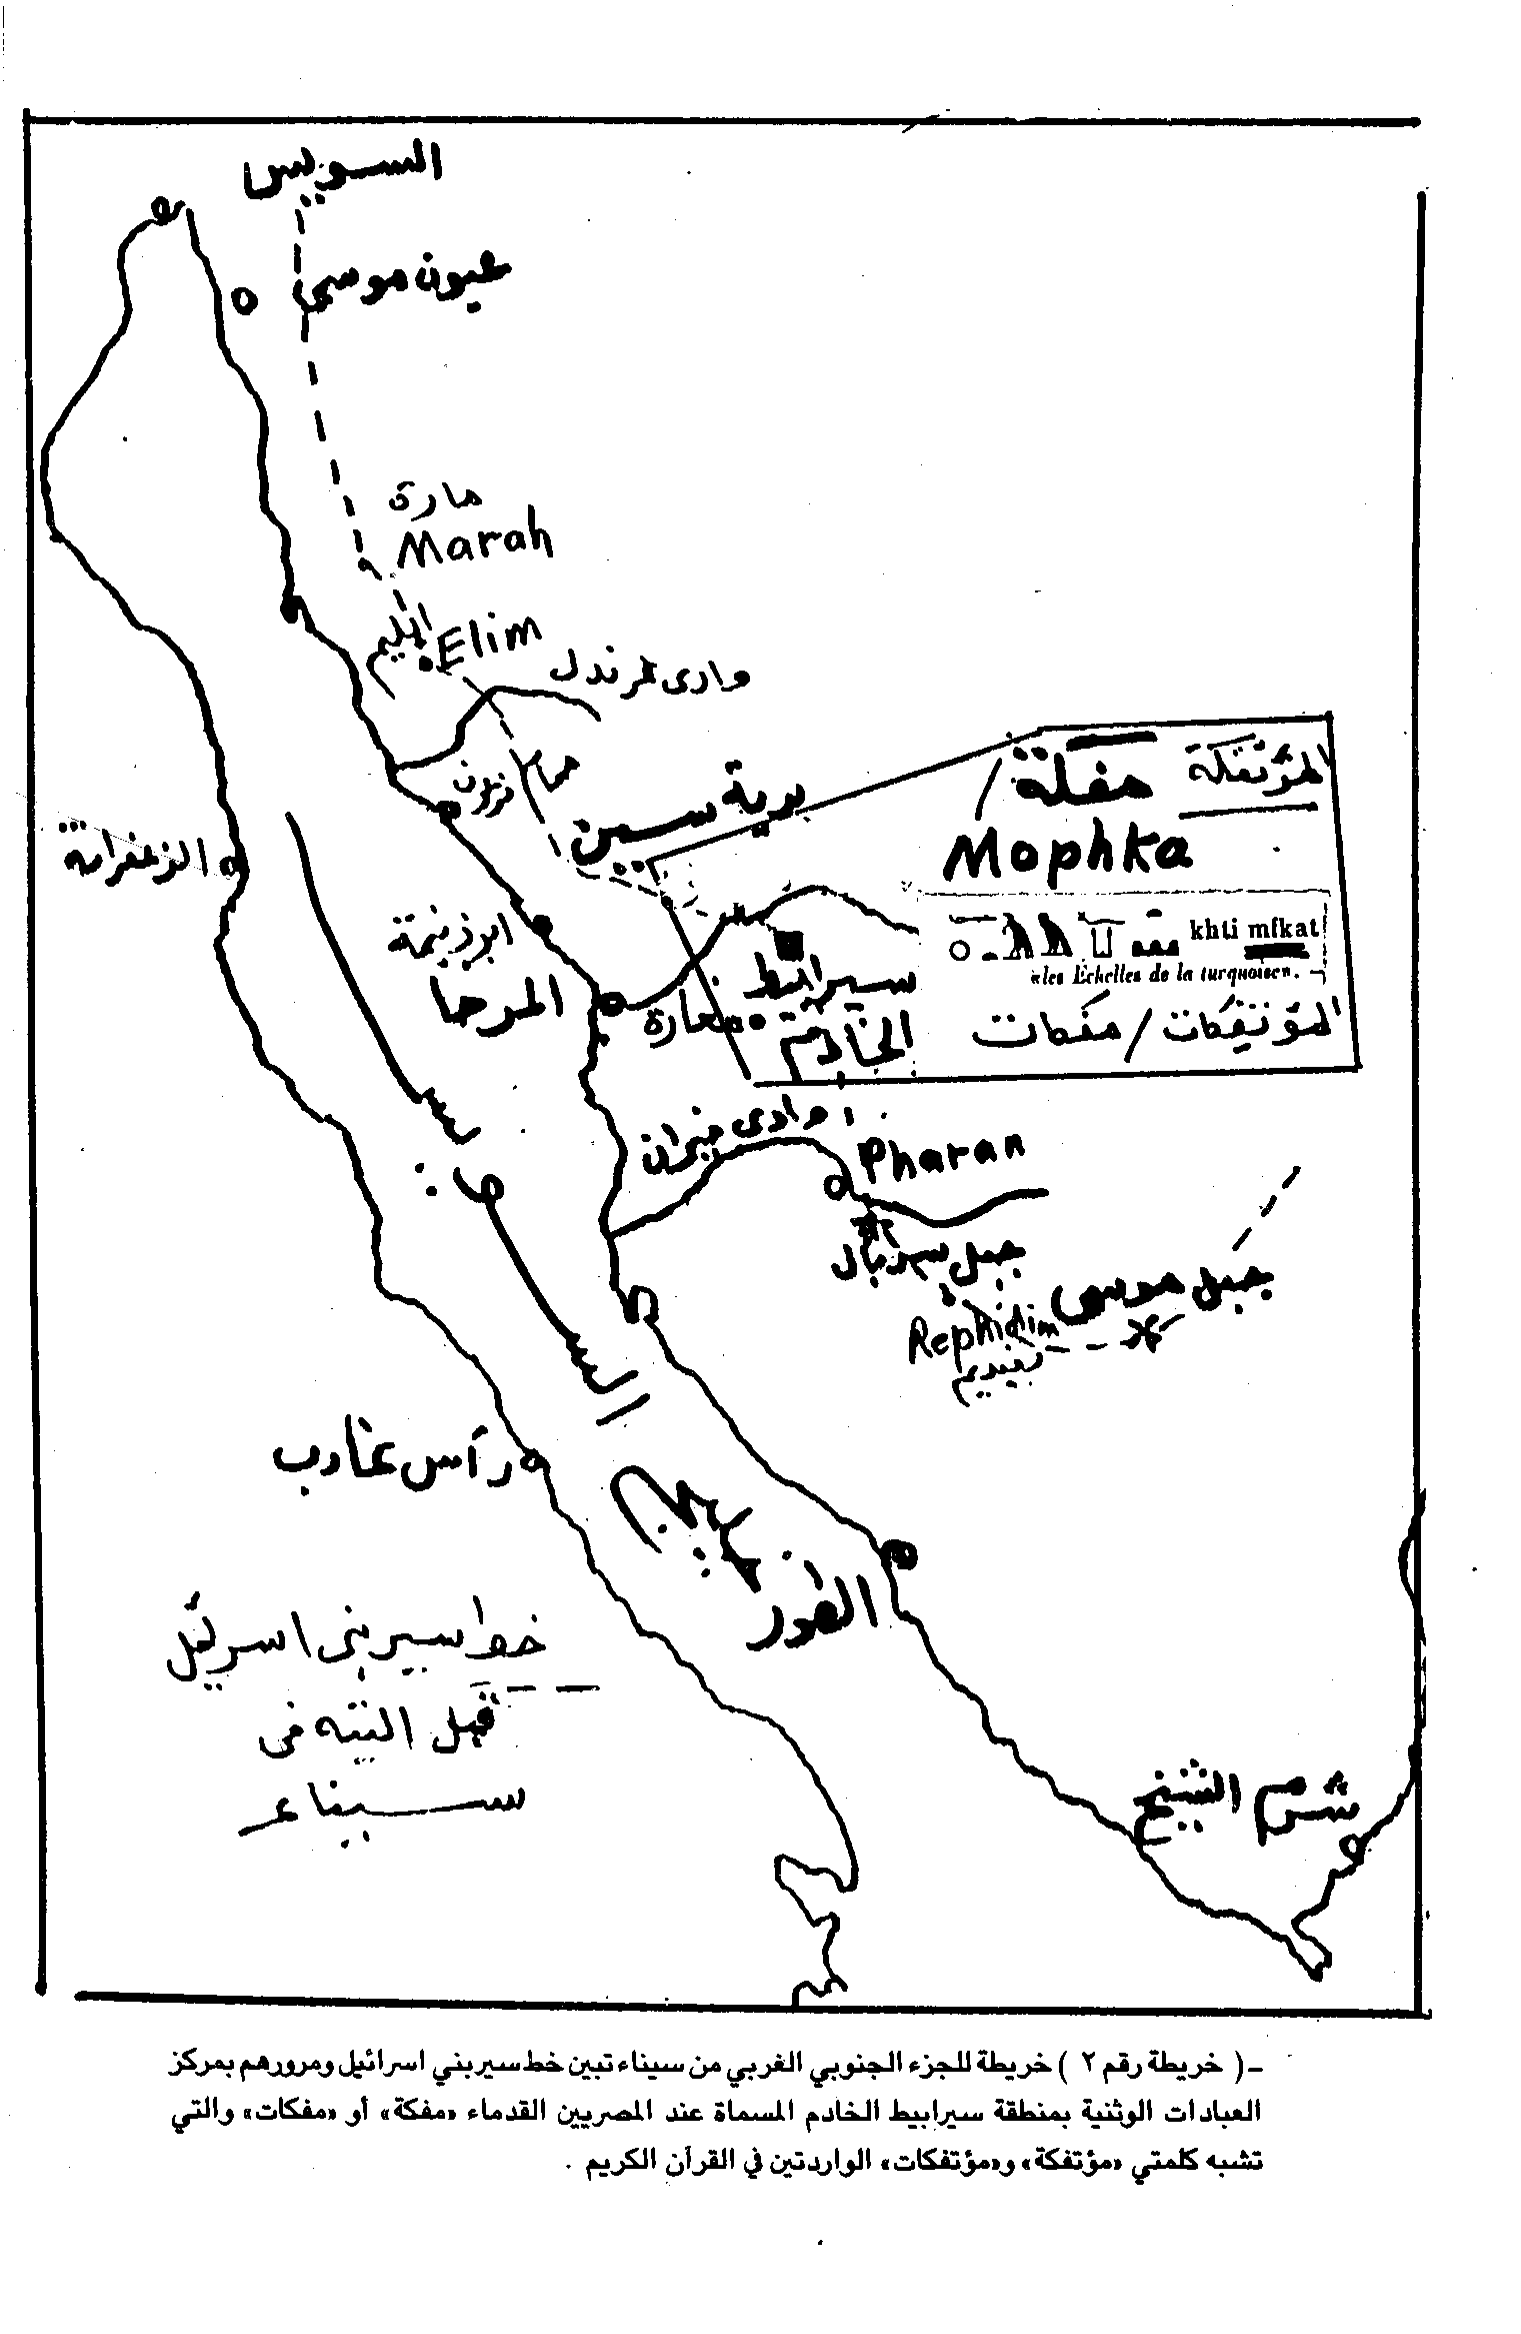 السويس
عيون موسى
مارة
Marah
ايليم
Elim
وادى غرندل
حمام
فرعون
برية سين
المؤتفكة مفكة /
Mophka
khti mfkat
«les Échelles de la turquoisen.
المؤتفكات / مفكات
الزعفرانة
ابو زنيمة
المرخا
سيرابيط
الخادم
مغارة
وادى فيران
Pharan
جبل سربال
جبل موسى
Rephidim
رفيديم
خليج
السويس
رأس غارب
الطور
خط سير بنى اسرائيل
قبل التيه فى
سيناء
شرم الشيخ
ـ ( خريطة رقم ٢ ) خريطة للجزء الجنوبي الغربي من سيناء تبين خط سير بني اسرائيل ومرورهم بمركز
العبادات الوثنية بمنطقة سيرابيط الخادم المسماة عند المصريين القدماء «مفكة» أو «مفكات» والتي
تشبه كلمتي «مؤتفكة» و«مؤتفكات» الواردتين في القرآن الكريم .